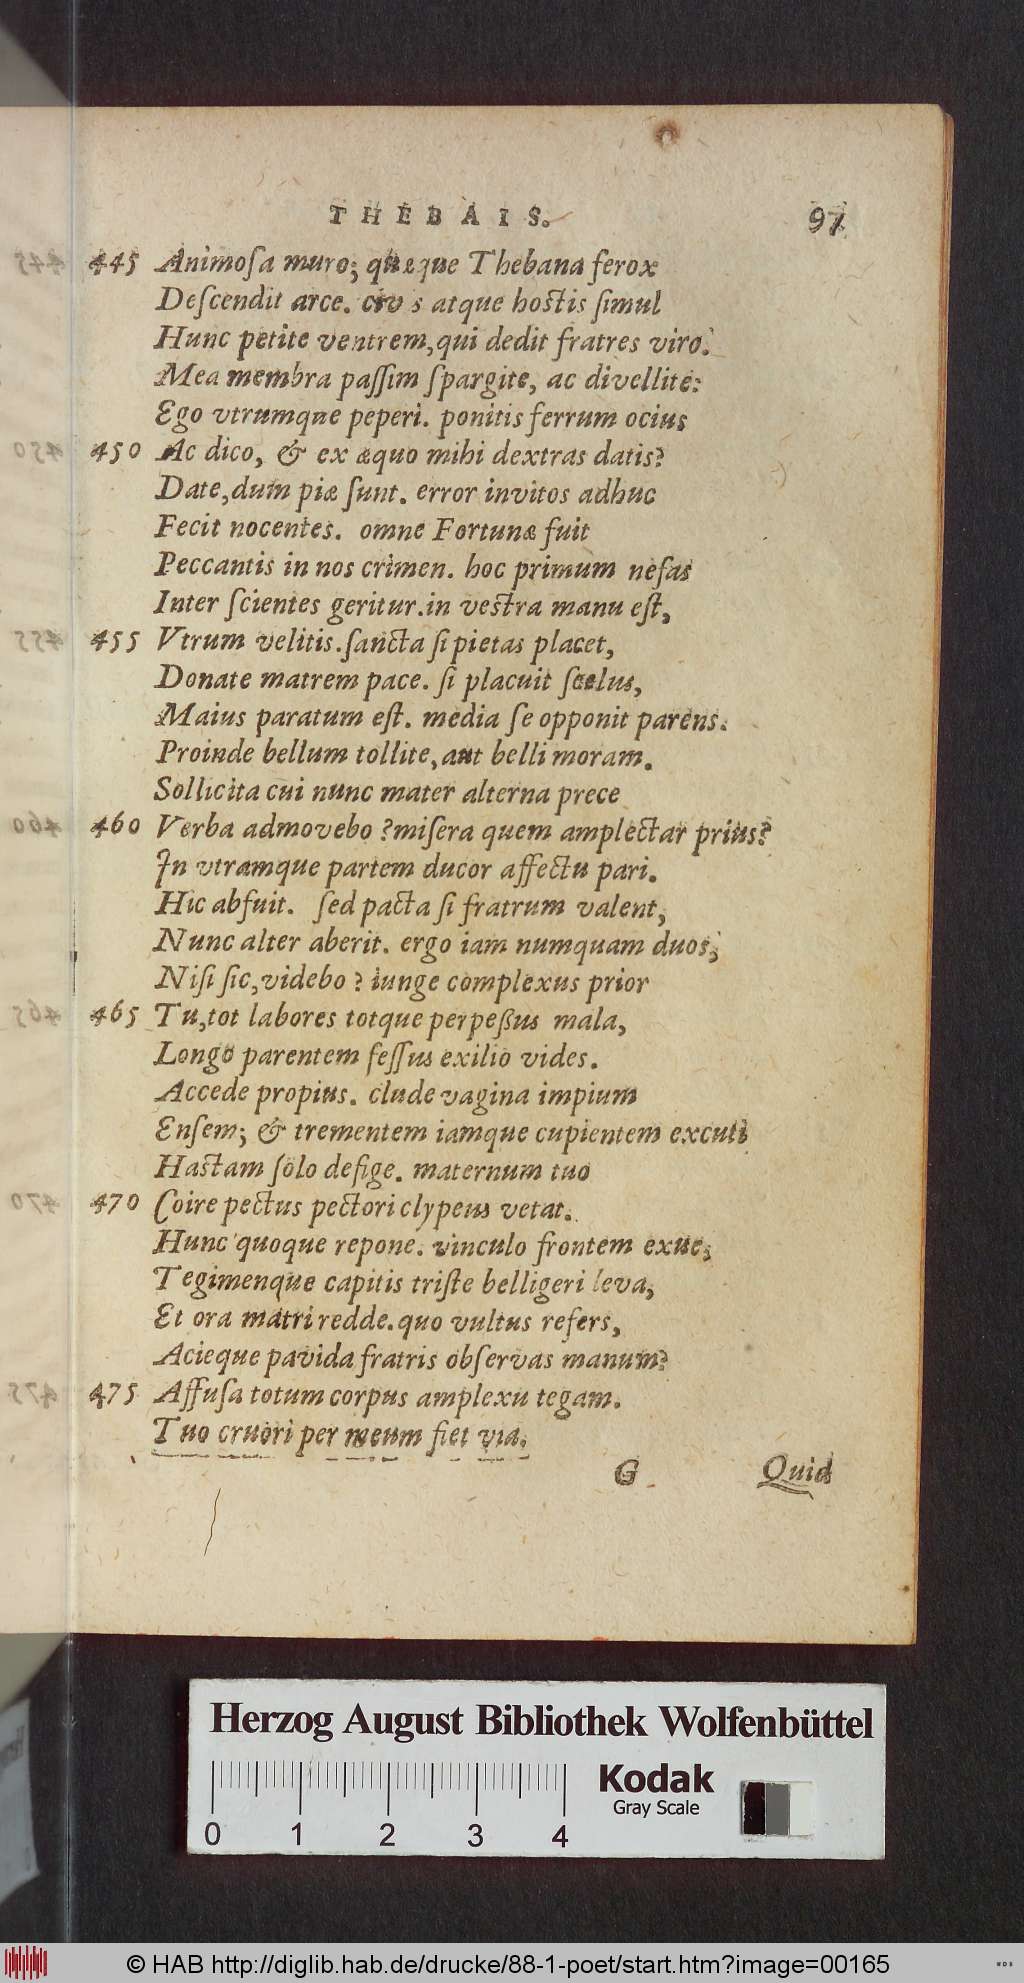 THEBAIS. 97
445 Animoſa muro; quæque Thebana ferox
Deſcendit arce. civ s atque hostis ſimul
Hunc petite ventrem, qui dedit fratres viro.
Mea membra paſſim ſpargite, ac divellite:
Ego vtrumque peperi. ponitis ferrum ocius
450 Ac dico, & ex æquo mihi dextras datis?
Date, dum piæ ſunt. error invitos adhuc
Fecit nocentes. omne Fortunæ fuit
Peccantis in nos crimen. hoc primum nefas
Inter ſcientes geritur. in vestra manu eſt,
455 Vtrum velitis. ſancta ſi pietas placet,
Donate matrem pace. ſi placuit ſcelus,
Maius paratum eſt. media ſe opponit parens.
Proinde bellum tollite, aut belli moram.
Sollicita cui nunc mater alterna prece
460 Verba admovebo? miſera quem amplectar prius?
In vtramque partem ducor affectu pari.
Hic abfuit. ſed pacta ſi fratrum valent,
Nunc alter aberit. ergo iam numquam duos,
Niſi ſic, videbo? iunge complexus prior
465 Tu, tot labores totque perpeßus mala,
Longo parentem feſſus exilio vides.
Accede propius. clude vagina impium
Enſem; & trementem iamque cupientem excuti
Hastam ſolo defige. maternum tuo
470 Coire pectus pectori clypeus vetat.
Hunc quoque repone. vinculo frontem exue,
Tegimenque capitis triſte belligeri leva,
Et ora matri redde. quo vultus refers,
Acieque pavida fratris obſervas manum?
475 Affuſa totum corpus amplexu tegam.
Tuo cruori per meum fiet via.
G Quid
Herzog August Bibliothek Wolfenbüttel
Kodak
Gray Scale
0 1 2 3 4
© HAB http://diglib.hab.de/drucke/88-1-poet/start.htm?image=00165